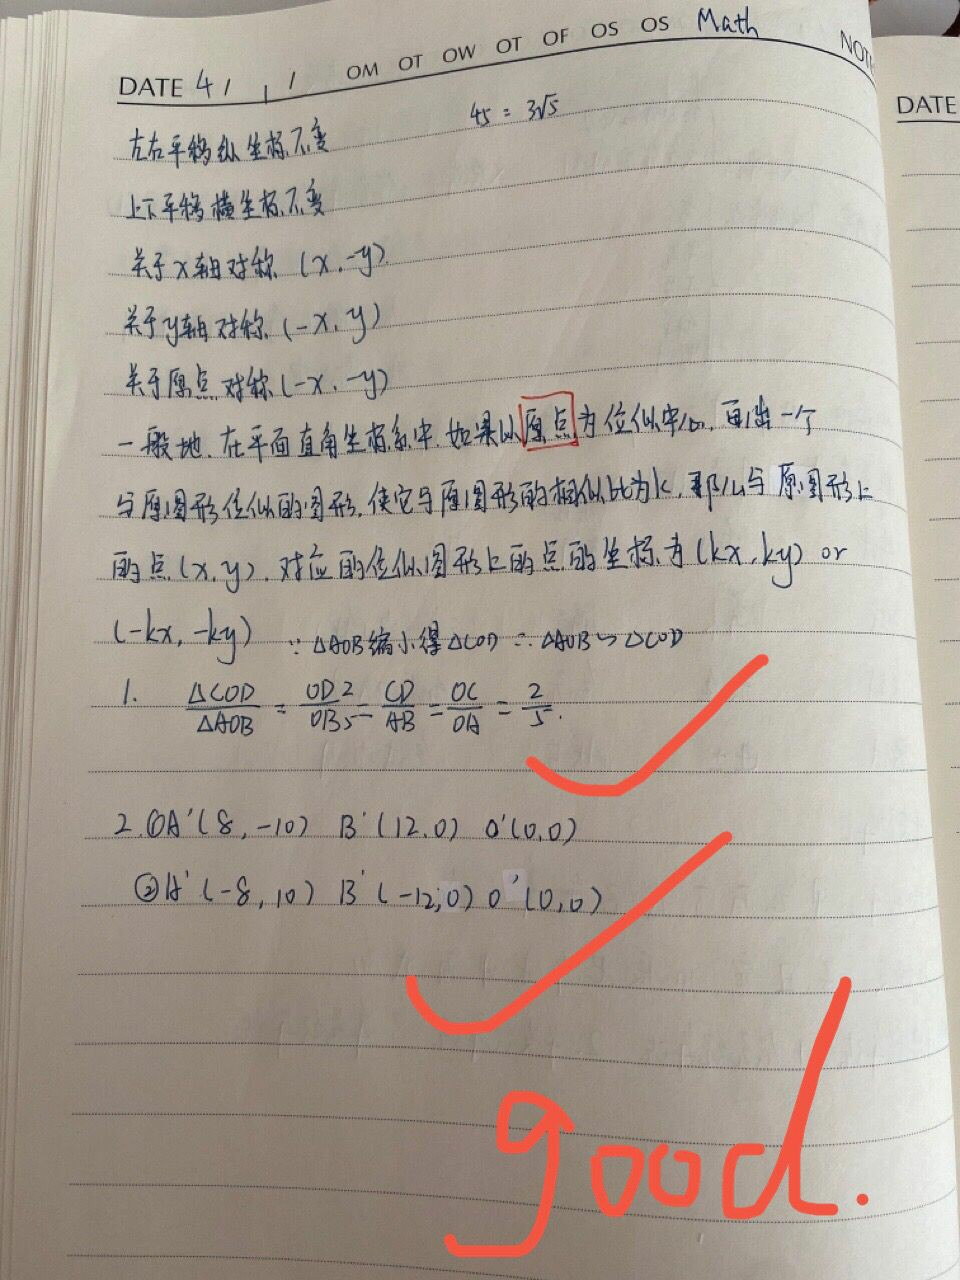 DATE 4 / 1 / OM OT OW OT OF OS OS Math
NOT
DATE
45 = 3√5
左右平移纵坐标不变
上下平移横坐标不变
关于x轴对称 (x,-y)
关于y轴对称 (-x,y)
关于原点对称(-x,-y)
一般地.在平面直角坐标系中.如果以原点为位似中心.画出一个
与原图形位似的图形.使它与原图形的相似比为k.那么与原图形上
的点(x,y).对应的位似图形上的点的坐标为(kx,ky) or
(-kx,-ky) ∵△AOB缩小得△COD ∴△AOB∽△COD
1. △COD/△AOB = OD 2/OB 5 = CD/AB = OC/OA = 2/5.
2.①A'(8,-10) B'(12,0) O'(0,0)
②A'(-8,10) B'(-12,0) O'(0,0)
good.